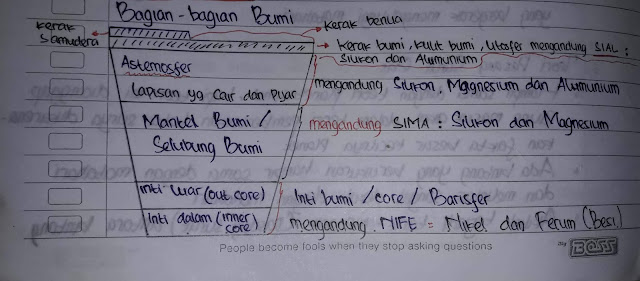 Bagian-bagian Bumi
kerak benua
kerak samudera
kerak bumi, kulit bumi, litosfer mengandung SIAL :
Silikon dan Alumunium
Astenosfer
Lapisan yg Cair dan Pijar
mengandung Silikon, Magnesium dan Alumunium
Mantel Bumi /
Selubung Bumi
mengandung SIMA : Silikon dan Magnesium
Inti luar (out core)
Inti bumi / core / Barisfer
Inti dalam (inner core)
mengandung NIFE = Nikel dan Ferum (Besi)
People become fools when they stop asking questions
Big BOSS